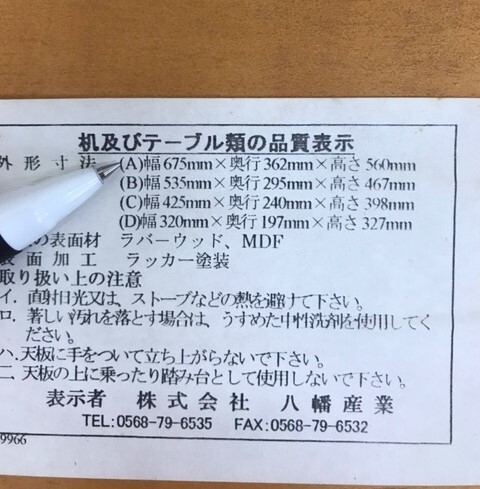 机及びテーブル類の品質表示
外形寸法 (A)幅675mm×奥行362mm×高さ560mm
(B)幅535mm×奥行295mm×高さ467mm
(C)幅425mm×奥行240mm×高さ398mm
(D)幅320mm×奥行197mm×高さ327mm
の表面材 ラバーウッド、MDF
表面加工 ラッカー塗装
取り扱い上の注意
イ.直射日光又は、ストーブなどの熱を避けて下さい。
ロ.著しい汚れを落とす場合は、うすめた中性洗剤を使用してく
ださい。
ハ.天板に手をついて立ち上がらないで下さい。
ニ.天板の上に乗ったり踏み台として使用しないで下さい。
表示者 株式会社 八幡産業
TEL:0568-79-6535 FAX:0568-79-6532
9966